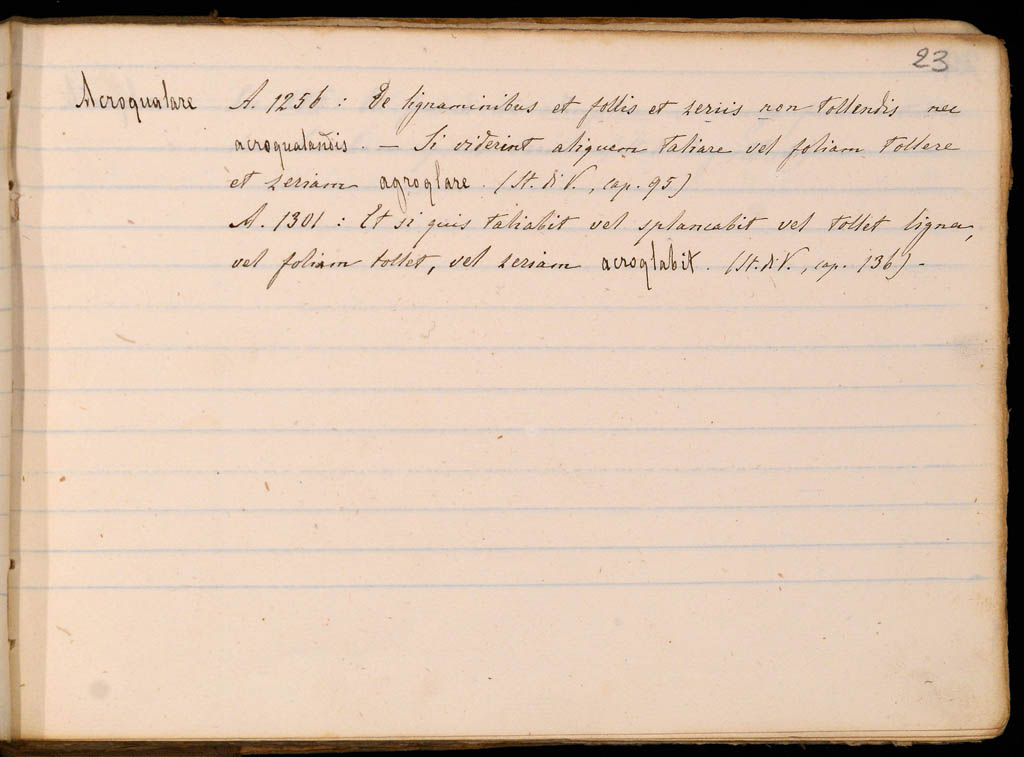 23
Acroqualare A. 1256 : De lignaminibus et follis et zeriis non tollendis nec
acroqualandis. — Si viderint aliquem taliare vel foliam tollere
et zeriam agroqlare. (St. di V., cap. 95)
A. 1301 : Et si quis taliabit vel splancabit vel tollet ligna,
vel foliam tollet, vel zeriam acroqlabit. (St. di V., cap. 136) -